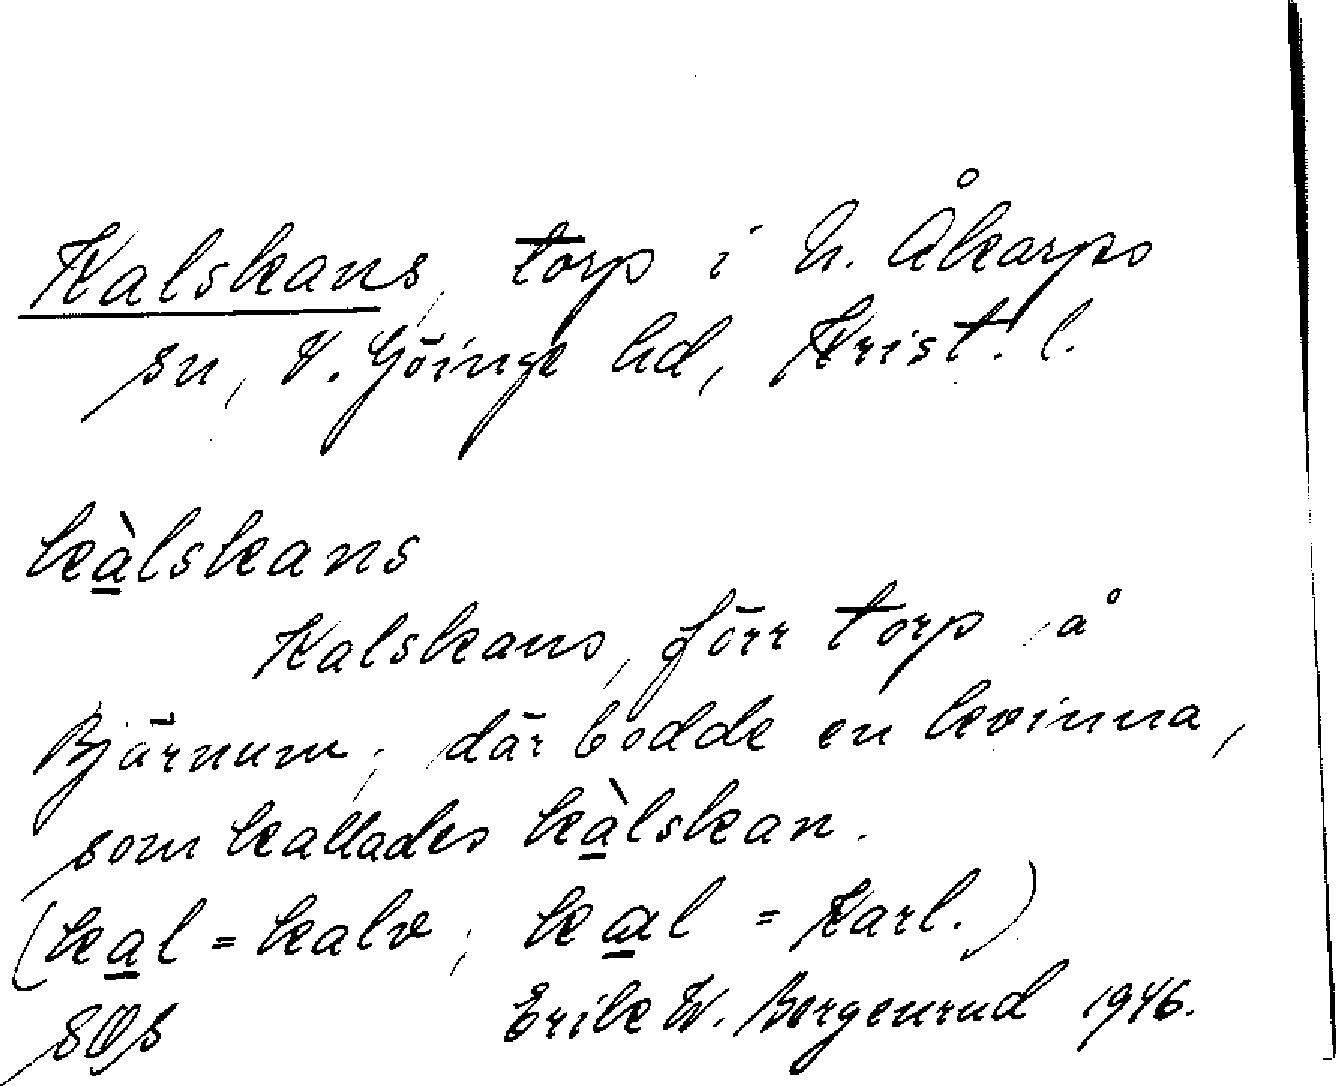 Kalskans, torp i N. Åkarps
sn, V. Göinge hd, Krist. l.
kàlskans
Kalskans, förr torp å
Bjärnum; där bodde en kvinna,
som kallades kàlskan.
(kal = kalv; kal = Karl.)
SOS Erik W. Bergenrud 1946.